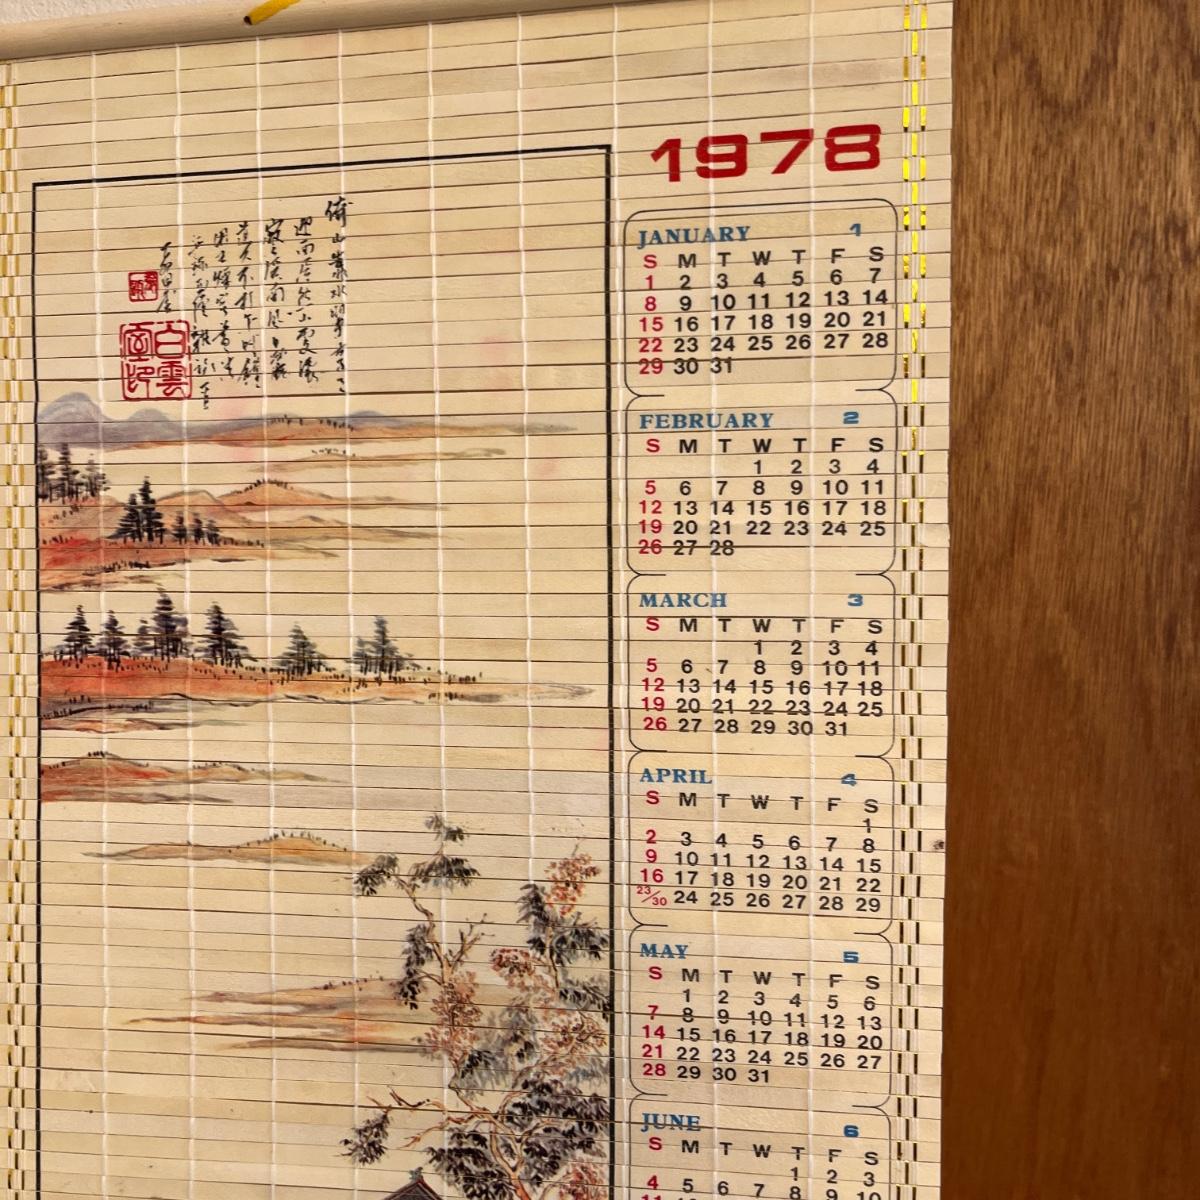 倚
白雲
室印
1978
JANUARY 1
S M T W T F S
1 2 3 4 5 6 7
8 9 10 11 12 13 14
15 16 17 18 19 20 21
22 23 24 25 26 27 28
29 30 31
FEBRUARY 2
S M T W T F S
1 2 3 4
5 6 7 8 9 10 11
12 13 14 15 16 17 18
19 20 21 22 23 24 25
26 27 28
MARCH 3
S M T W T F S
1 2 3 4
5 6 7 8 9 10 11
12 13 14 15 16 17 18
19 20 21 22 23 24 25
26 27 28 29 30 31
APRIL 4
S M T W T F S
1
2 3 4 5 6 7 8
9 10 11 12 13 14 15
16 17 18 19 20 21 22
23/30 24 25 26 27 28 29
MAY 5
S M T W T F S
1 2 3 4 5 6
7 8 9 10 11 12 13
14 15 16 17 18 19 20
21 22 23 24 25 26 27
28 29 30 31
JUNE 6
S M T W T F S
1 2 3
4 5 6 7 8 9 10